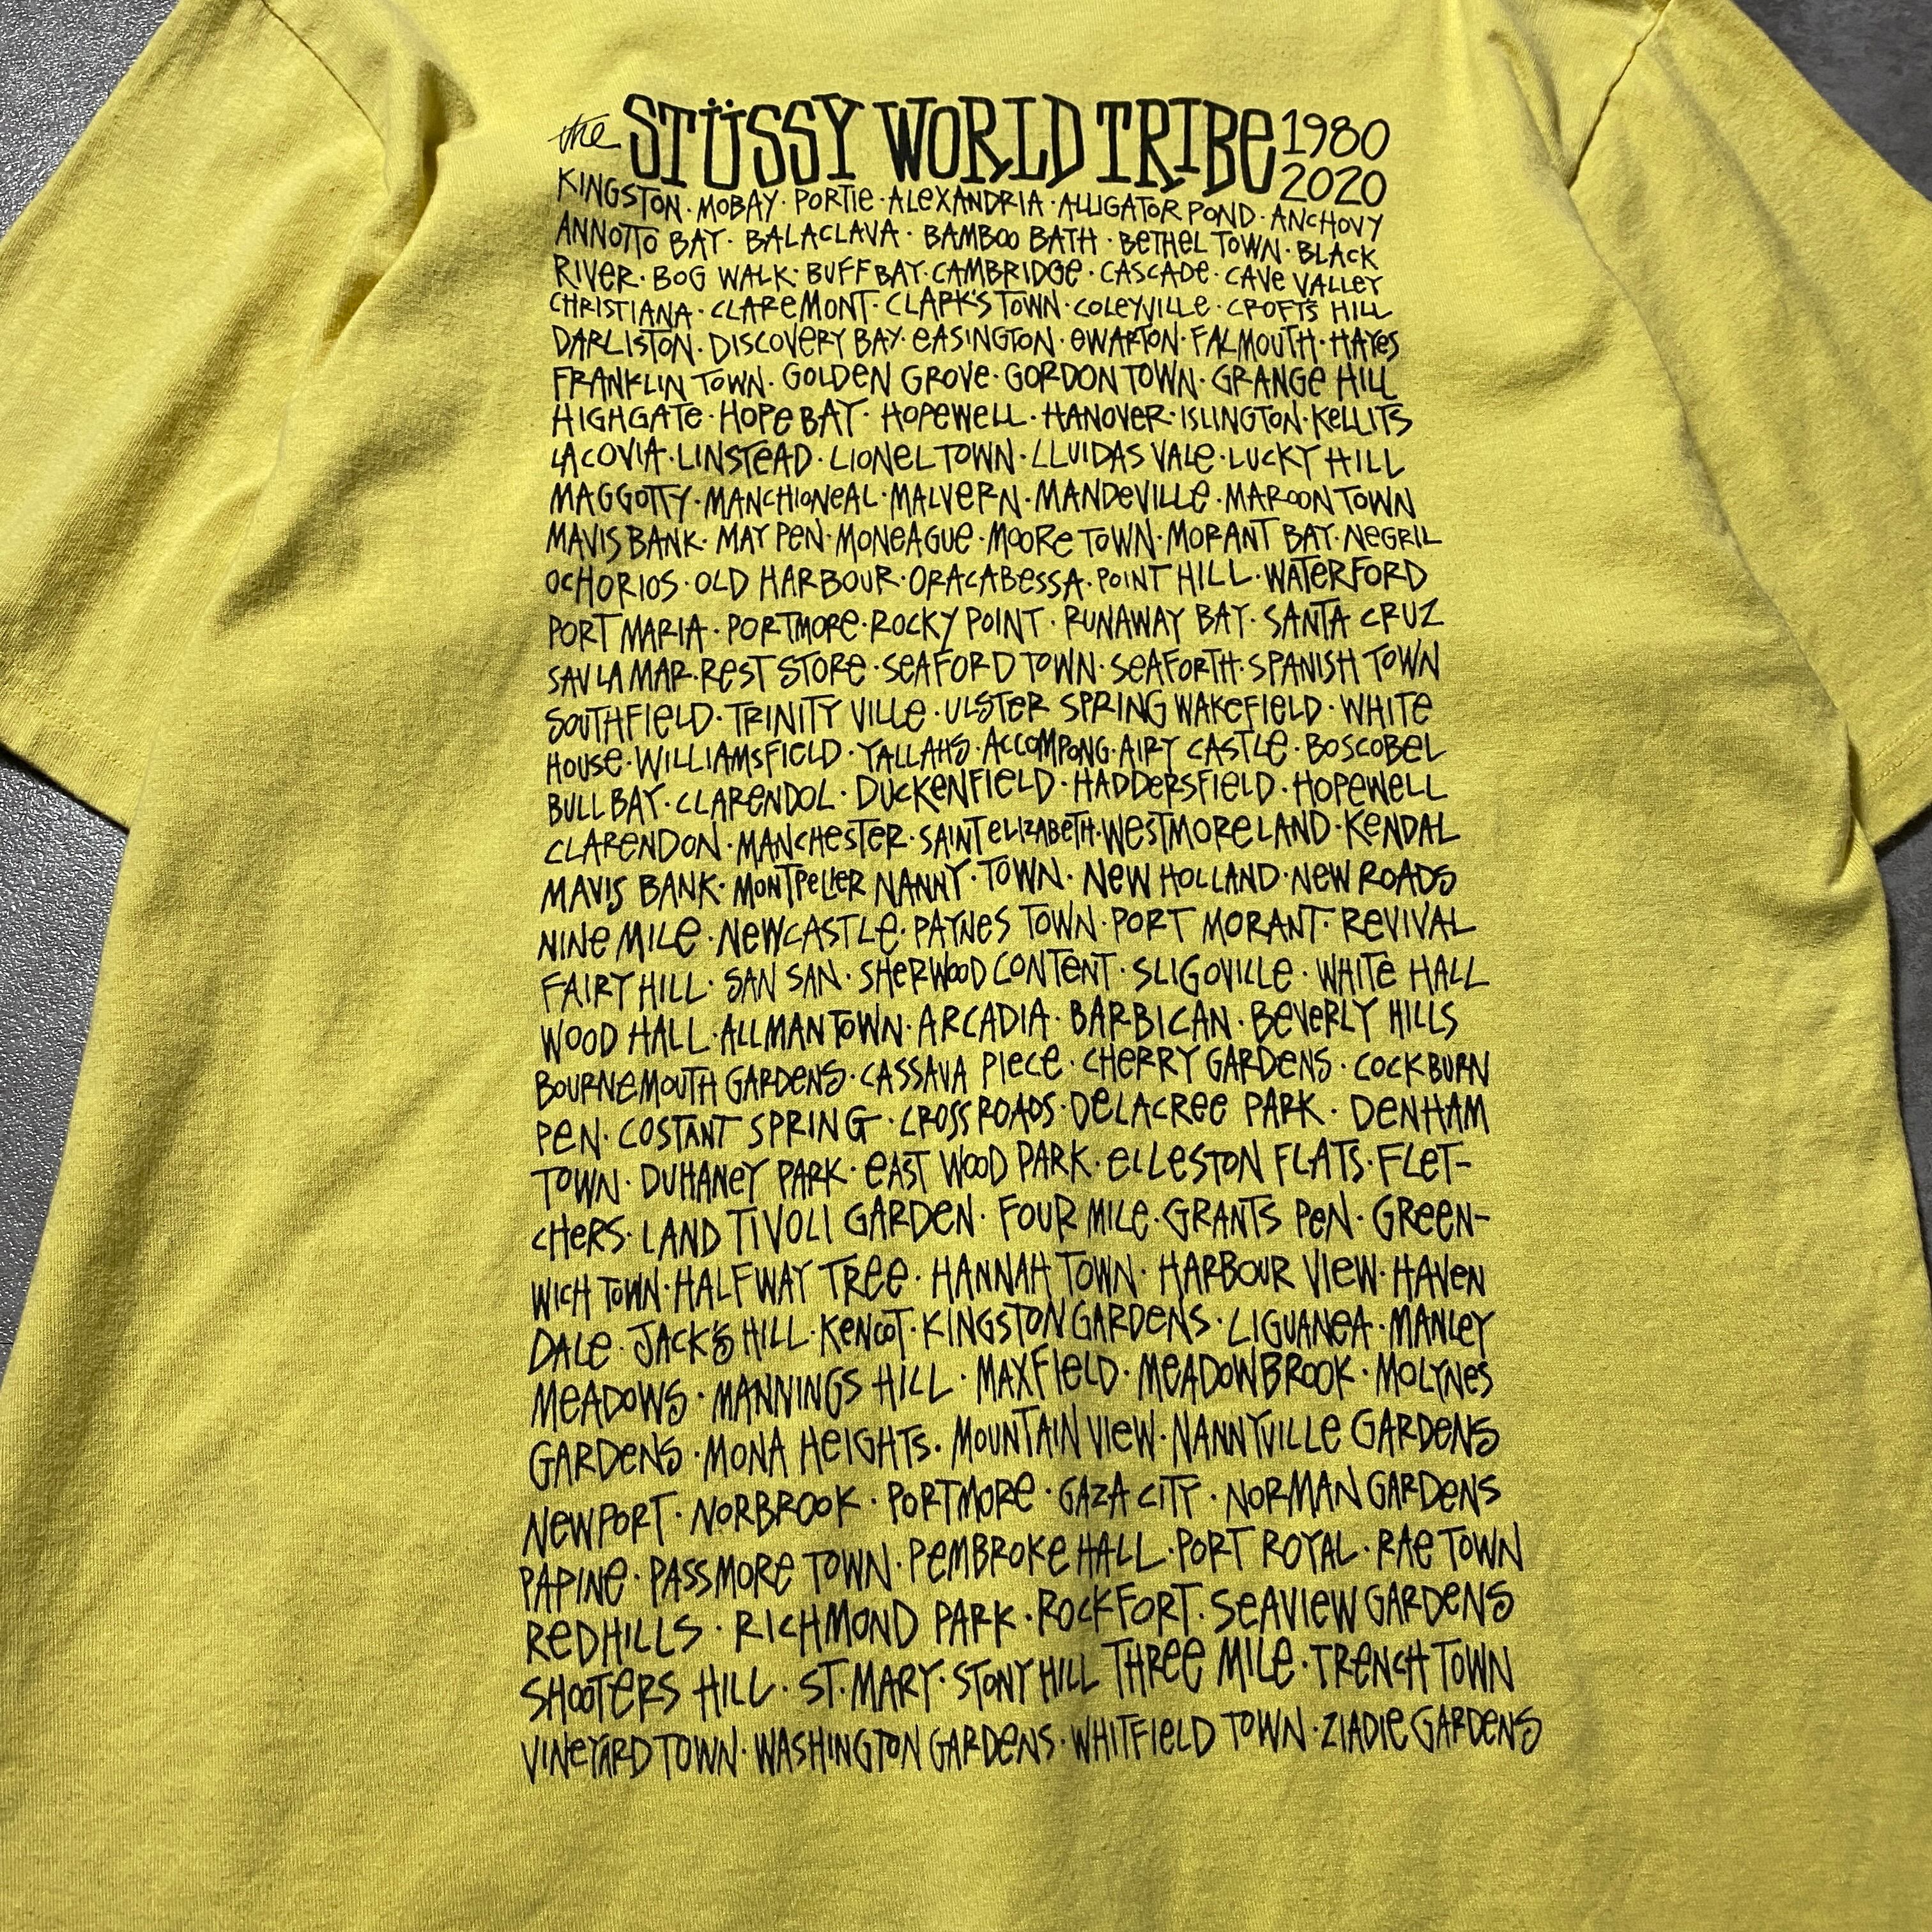 the STÜSSY WORLD TRIBE 1980
2020
KINGSTON · MOBAY · PORTIE · ALEXANDRIA · ALLIGATOR POND · ANCHOVY
ANNOTTO BAY · BALACLAVA · BAMBOO BATH · BETHEL TOWN · BLACK
RIVER · BOG WALK · BUFF BAY · CAMBRIDGE · CASCADE · CAVE VALLEY
CHRISTIANA · CLAREMONT · CLARK'S TOWN · COLEYVILLE · CROFTS HILL
DARLISTON · DISCOVERY BAY · EASINGTON · EWARTON · FALMOUTH · HAYES
FRANKLIN TOWN · GOLDEN GROVE · GORDON TOWN · GRANGE HILL
HIGHGATE · HOPE BAY · HOPEWELL · HANOVER · ISLINGTON · KELLITS
LACOVIA · LINSTEAD · LIONEL TOWN · LLUIDAS VALE · LUCKY HILL
MAGGOTTY · MANCHIONEAL · MALVERN · MANDEVILLE · MAROON TOWN
MAVIS BANK · MAY PEN · MONEAGUE · MOORE TOWN · MORANT BAY · NEGRIL
OCHO RIOS · OLD HARBOUR · ORACABESSA · POINT HILL · WATERFORD
PORT MARIA · PORTMORE · ROCKY POINT · RUNAWAY BAY · SANTA CRUZ
SAV LA MAR · REST STORE · SEAFORD TOWN · SEAFORTH · SPANISH TOWN
SOUTHFIELD · TRINITY VILLE · ULSTER SPRING WAKEFIELD · WHITE
HOUSE · WILLIAMSFIELD · YALLAHS · ACCOMPONG · AIRY CASTLE · BOSCOBEL
BULL BAY · CLARENDOL · DUCKENFIELD · HADDERSFIELD · HOPEWELL
CLARENDON · MANCHESTER · SAINT ELIZABETH · WESTMORELAND · KENDAL
MAVIS BANK · MONTPELIER NANNY · TOWN · NEW HOLLAND · NEW ROADS
NINE MILE · NEWCASTLE · PAYNES TOWN · PORT MORANT · REVIVAL
FAIRY HILL · SAN SAN · SHERWOOD CONTENT · SLIGOVILLE · WHITE HALL
WOOD HALL · ALLMAN TOWN · ARCADIA · BARBICAN · BEVERLY HILLS
BOURNEMOUTH GARDENS · CASSAVA PIECE · CHERRY GARDENS · COCKBURN
PEN · COSTANT SPRING · CROSS ROADS · DELACREE PARK · DENHAM
TOWN · DUHANEY PARK · EAST WOOD PARK · ELLESTON FLATS · FLET-
CHERS · LAND TIVOLI GARDEN · FOUR MILE · GRANTS PEN · GREEN-
WICH TOWN · HALFWAY TREE · HANNAH TOWN · HARBOUR VIEW · HAVEN
DALE · JACK'S HILL · KENCOT · KINGSTON GARDENS · LIGUANEA · MANLEY
MEADOWS · MANNINGS HILL · MAXFIELD · MEADOWBROOK · MOLYNES
GARDENS · MONA HEIGHTS · MOUNTAIN VIEW · NANNYVILLE GARDENS
NEWPORT · NORBROOK · PORTMORE · GAZA CITY · NORMAN GARDENS
PAPINE · PASSMORE TOWN · PEMBROKE HALL · PORT ROYAL · RAE TOWN
RED HILLS · RICHMOND PARK · ROCKFORT · SEAVIEW GARDENS
SHOOTERS HILL · ST. MARY · STONY HILL THREE MILE · TRENCH TOWN
VINEYARD TOWN · WASHINGTON GARDENS · WHITFIELD TOWN · ZIADIE GARDENS